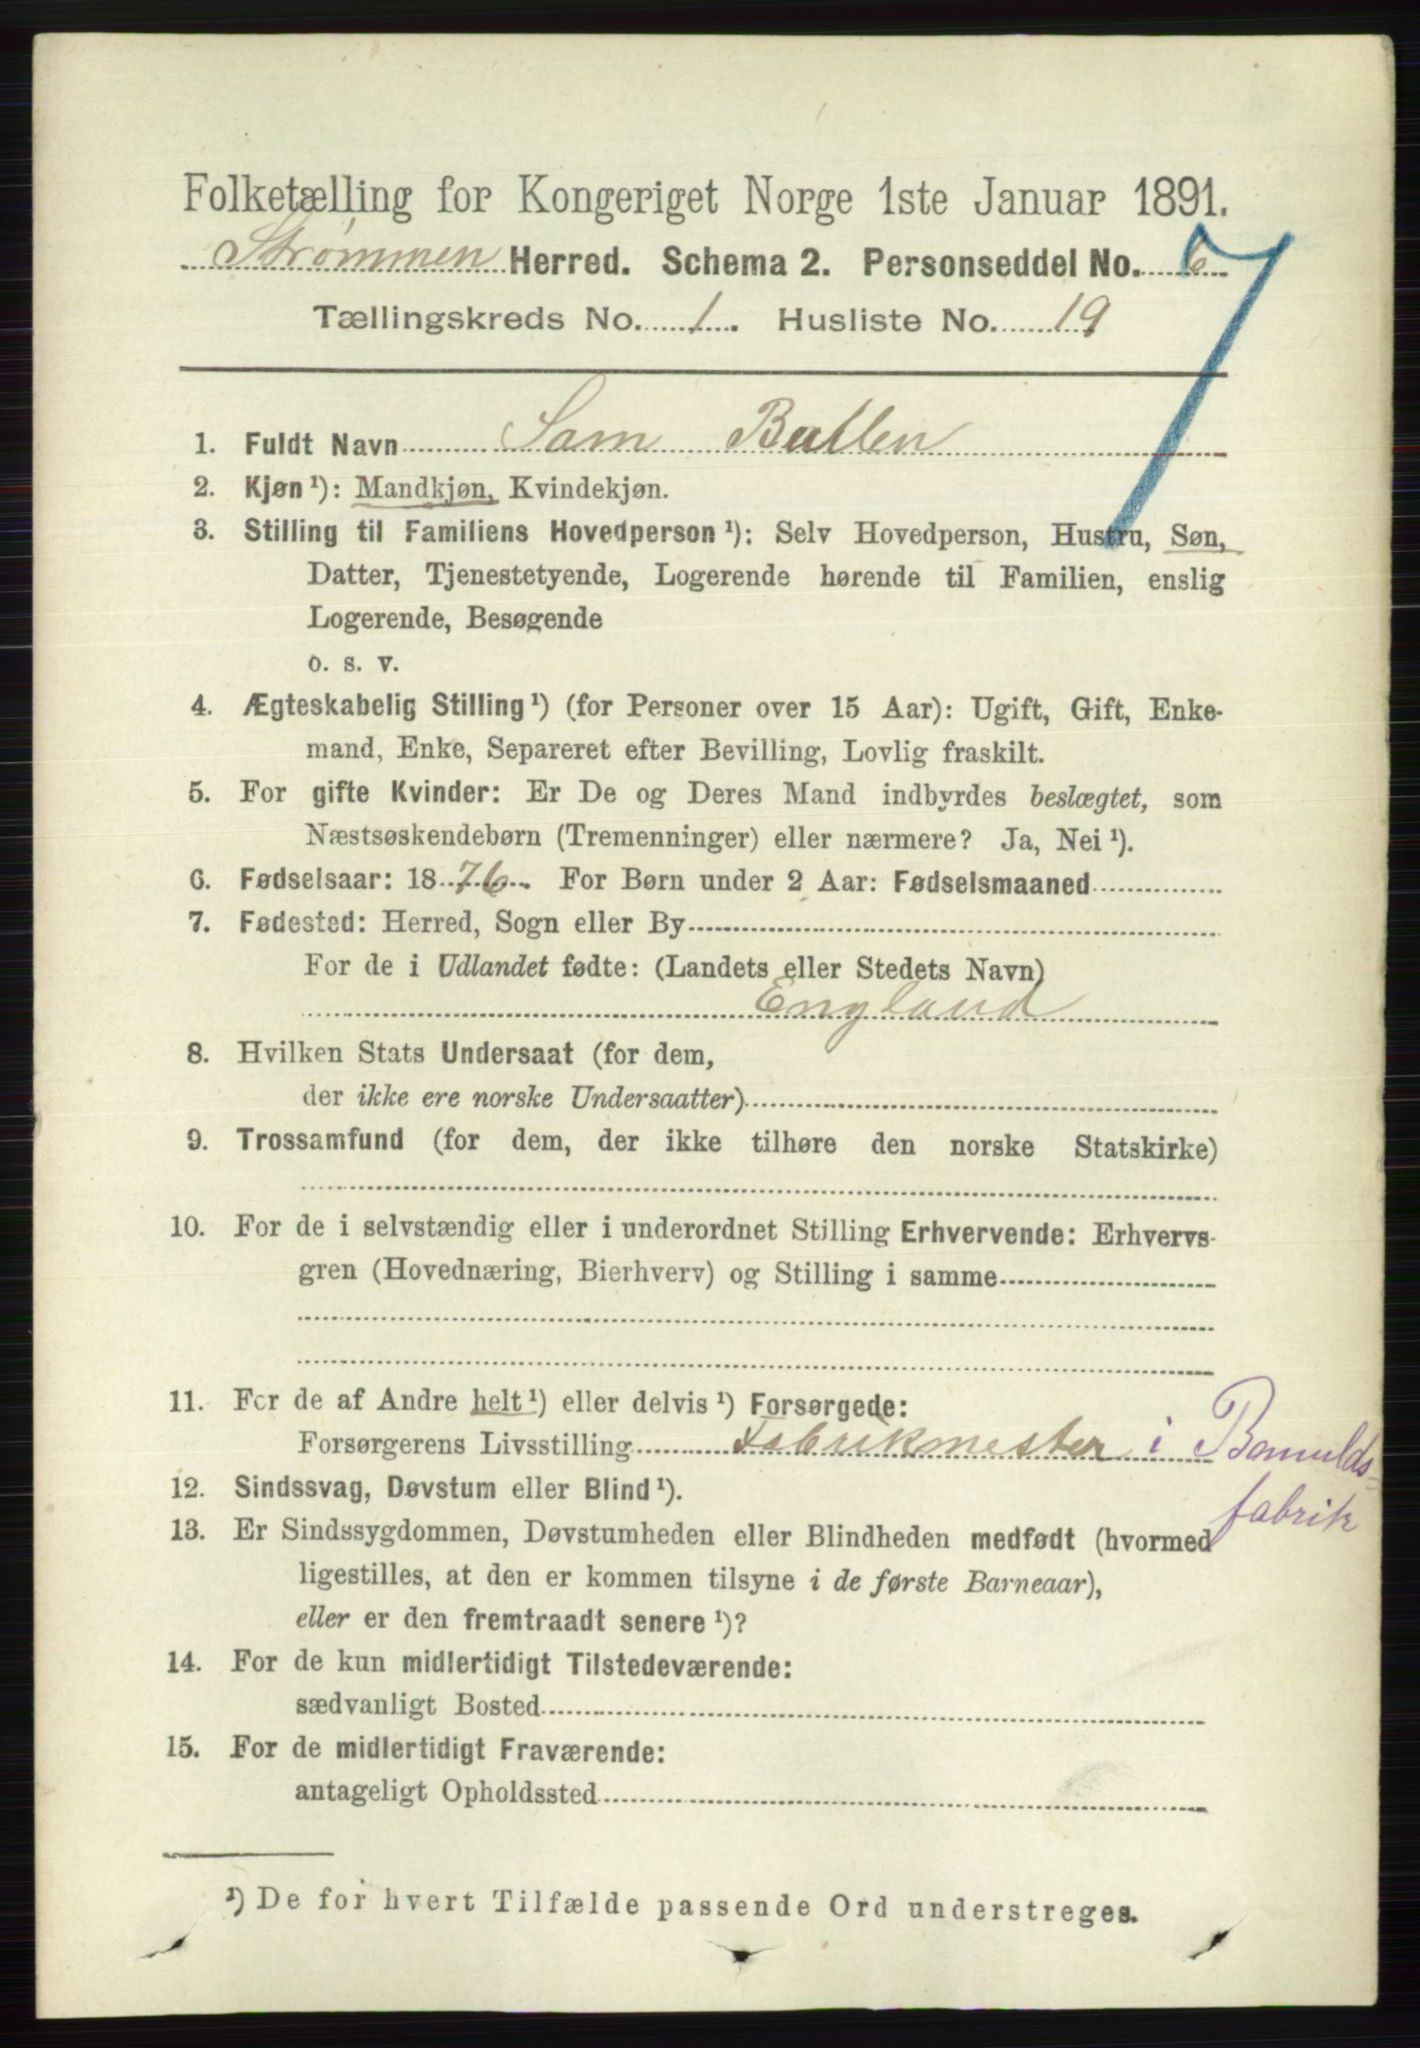 Folketælling for Kongeriget Norge 1ste Januar 1891.
Strømmen Herred. Schema 2. Personseddel No. 6
7
Tællingskreds No. 1. Husliste No. 19
1. Fuldt Navn Sam Butlen
2. Kjøn ¹): Mandkjøn, Kvindekjøn.
3. Stilling til Familiens Hovedperson ¹): Selv Hovedperson, Hustru, Søn,
Datter, Tjenestetyende, Logerende hørende til Familien, enslig
Logerende, Besøgende
o. s. v.
4. Ægteskabelig Stilling ¹) (for Personer over 15 Aar): Ugift, Gift, Enke-
mand, Enke, Separeret efter Bevilling, Lovlig fraskilt.
5. For gifte Kvinder: Er De og Deres Mand indbyrdes beslægtet, som
Næstsøskendebørn (Tremenninger) eller nærmere? Ja, Nei ¹).
6. Fødselsaar: 1876. For Børn under 2 Aar: Fødselsmaaned
7. Fødested: Herred, Sogn eller By
For de i Udlandet fødte: (Landets eller Stedets Navn)
England
8. Hvilken Stats Undersaat (for dem,
der ikke ere norske Undersaatter)
9. Trossamfund (for dem, der ikke tilhøre den norske Statskirke)
10. For de i selvstændig eller i underordnet Stilling Erhvervende: Erhvervs-
gren (Hovednæring, Bierhverv) og Stilling i samme
11. For de af Andre helt ¹) eller delvis ¹) Forsørgede:
Forsørgerens Livsstilling Fabrikmester i Bomulds-
fabrik
12. Sindssvag, Døvstum eller Blind ¹).
13. Er Sindssygdommen, Døvstumheden eller Blindheden medfødt (hvormed
ligestilles, at den er kommen tilsyne i de første Barneaar),
eller er den fremtraadt senere ¹)?
14. For de kun midlertidigt Tilstedeværende:
sædvanligt Bosted
15. For de midlertidigt Fraværende:
antageligt Opholdssted
¹) De for hvert Tilfælde passende Ord understreges.